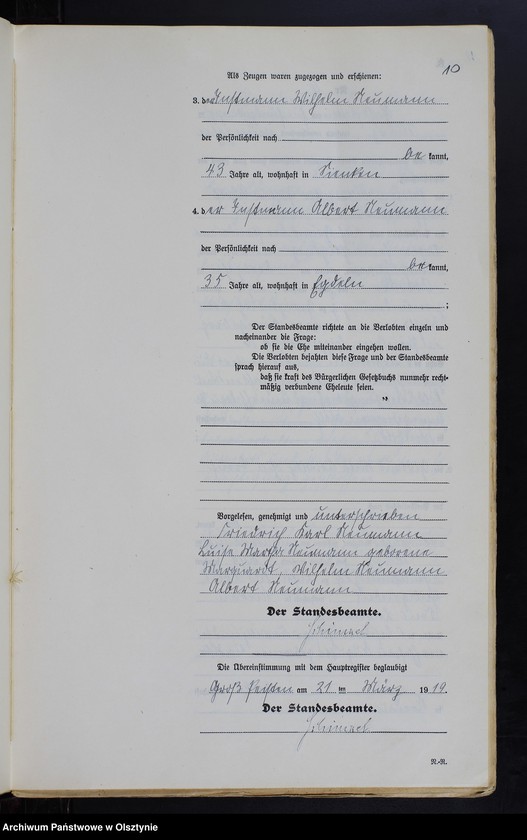 10
Als Zeugen waren zugezogen und erschienen:
3. der Instmann Wilhelm Neumann
der Persönlichkeit nach
be kannt,
43 Jahre alt, wohnhaft in
4. der Instmann Albert Neumann
der Persönlichkeit nach
be kannt,
35 Jahre alt, wohnhaft in Egdeln
;
Der Standesbeamte richtete an die Verlobten einzeln und
nacheinander die Frage:
ob sie die Ehe miteinander eingehen wollen.
Die Verlobten bejahten diese Frage und der Standesbeamte
sprach hierauf aus,
daß sie kraft des Bürgerlichen Gesetzbuchs nunmehr recht-
mäßig verbundene Eheleute seien.
Vorgelesen, genehmigt und unterschrieben
Friedrich Karl Neumann
Luise Martha Neumann geborene
Marquardt, Wilhelm Neumann
Albert Neumann
Der Standesbeamte.
Die Übereinstimmung mit dem Hauptregister beglaubigt
Groß Peisten am 21 ten März 1919.
Der Standesbeamte.
N.-R.
Archiwum Państwowe w Olsztynie